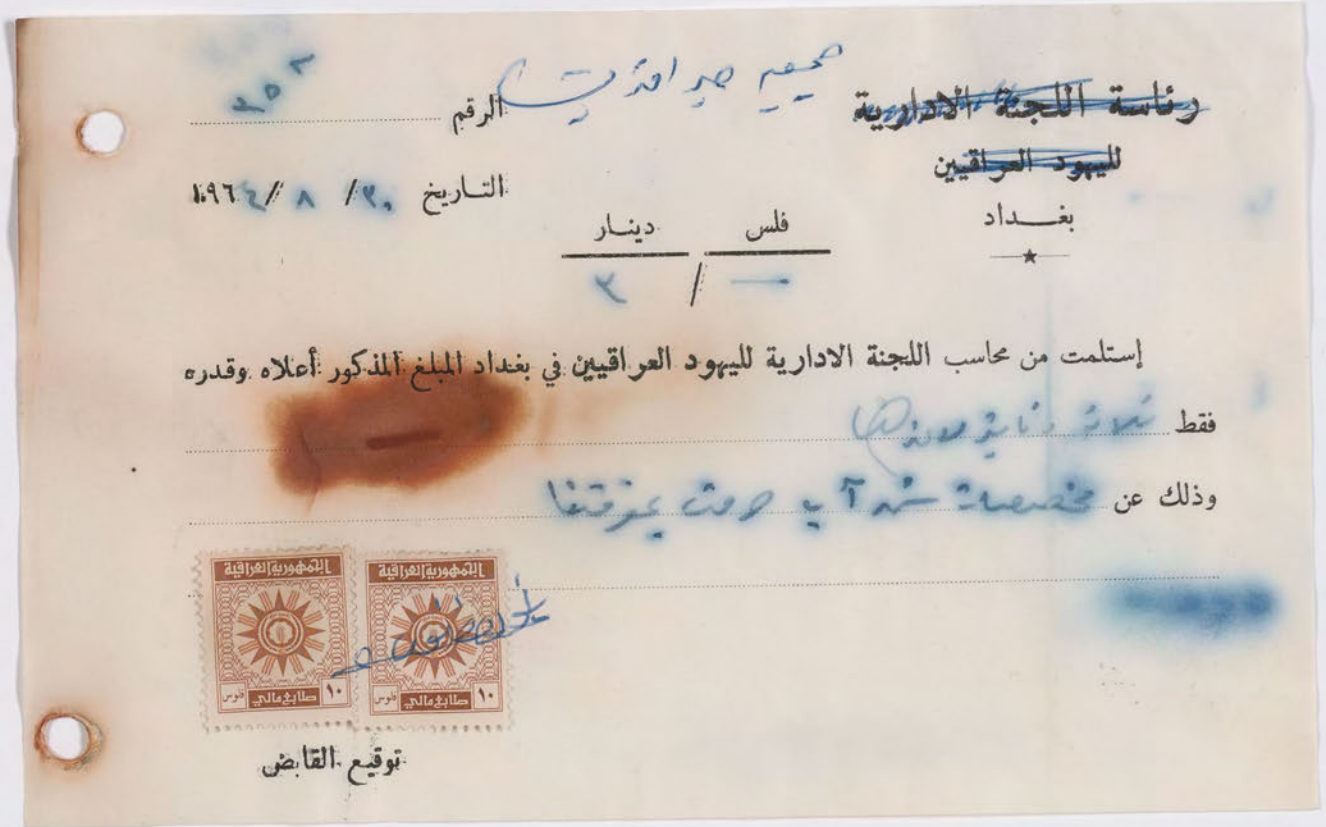 رئاسة اللجنة الادارية
للیهود العراقيين
بغــداد
الرقم ٣٥٢
التاريخ ٣٠ / ٨ / ١٩٦٤
فلس دينار
— / ٣
إستلمت من محاسب اللجنة الادارية لليهود العراقيين في بغداد المبلغ المذكور أعلاه وقدره
فقط ثلاثة دنانير
وذلك عن مخصصات شهر آب
الجمهورية العراقية
١٠ طابع مالي فلوس
الجمهورية العراقية
١٠ طابع مالي فلوس
توقيع القابض